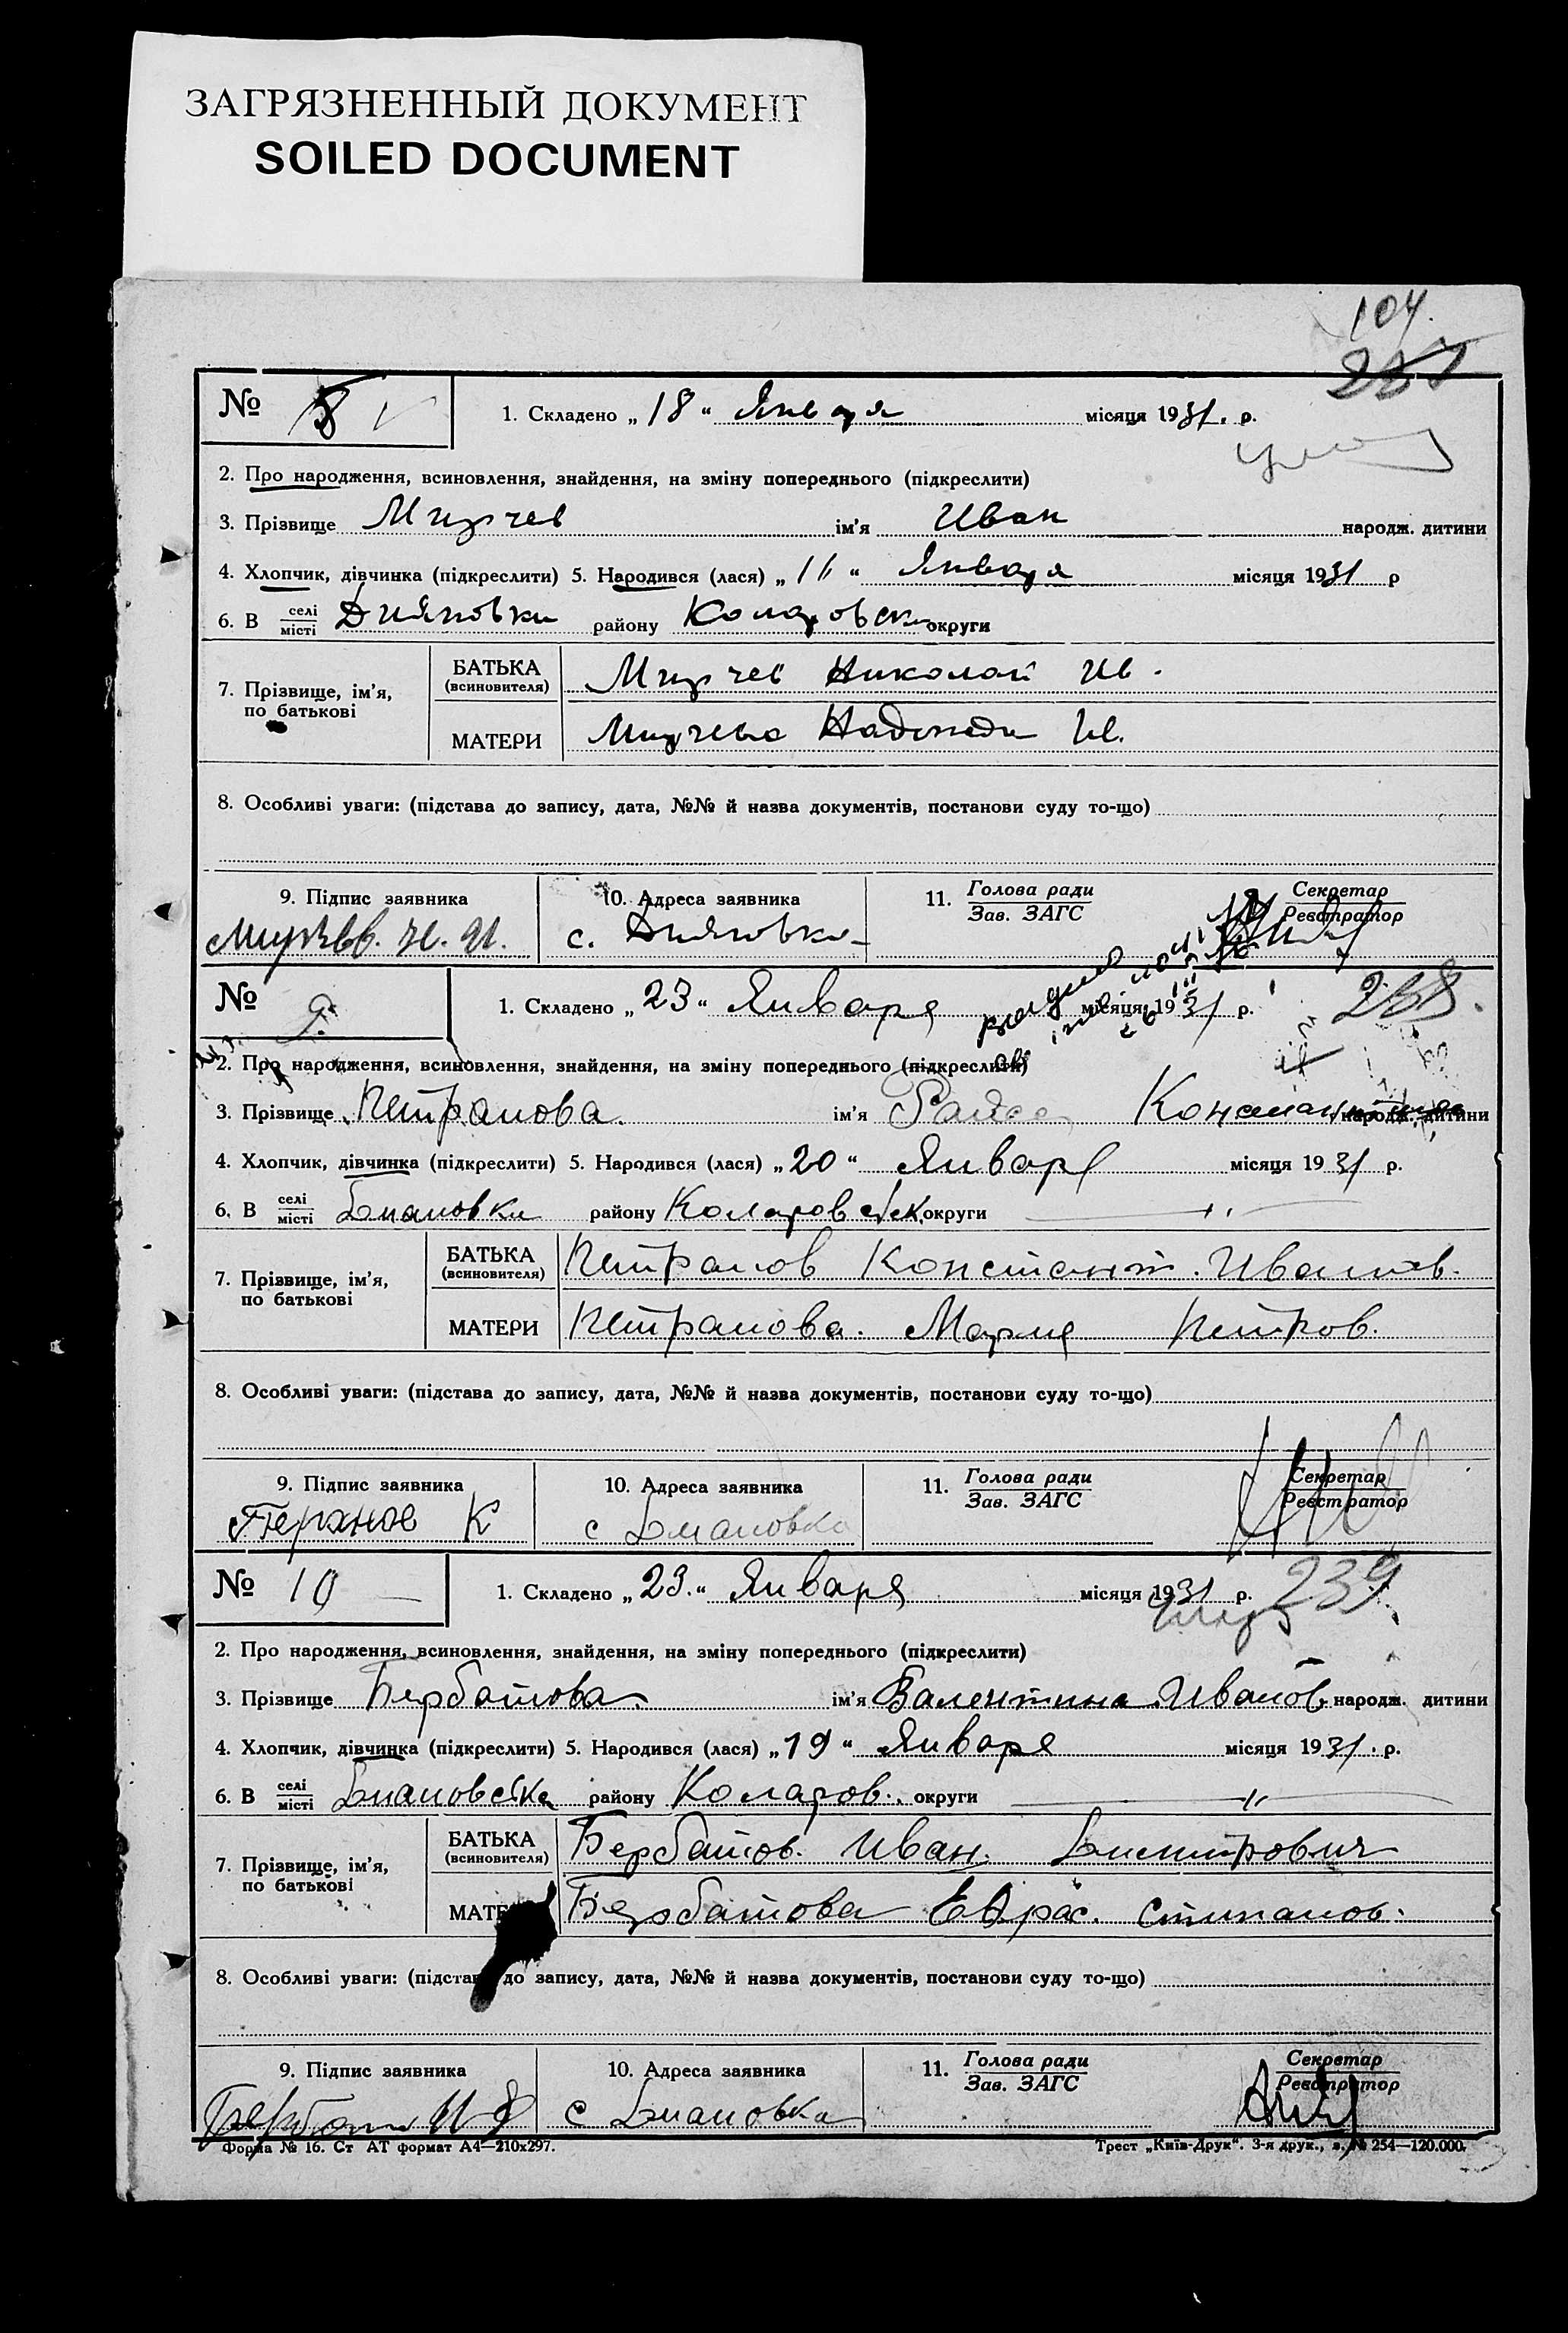 ЗАГРЯЗНЕННЫЙ ДОКУМЕНТ
SOILED DOCUMENT
104.
№ 8
1. Складено „18“ Января місяця 1931. р.
2. Про народження, всиновлення, знайдення, на зміну попереднього (підкреслити)
3. Прізвище Мирчев ім'я Иван народж. дитини
4. Хлопчик, дівчинка (підкреслити) 5. Народився (лася) „11“ Января місяця 1931 р
6. В селі/місті Дияновки району Коларовск округи
7. Прізвище, ім'я, по батькові
БАТЬКА (всиновителя) Мирчев Николай Ив.
МАТЕРИ Мирчева Надежда Ив.
8. Особливі уваги: (підстава до запису, дата, №№ й назва документів, постанови суду то-що)
9. Підпис заявника 10. Адреса заявника 11. Голова ради/Зав. ЗАГС Секретар/Реєстратор
Мирчев. Н. И. с. Дияновка
№ 9.
1. Складено „23“ Января місяця 1931 р. 238.
2. Про народження, всиновлення, знайдення, на зміну попереднього (підкреслити)
3. Прізвище Петранова. ім'я Раиса народж. дитини
4. Хлопчик, дівчинка (підкреслити) 5. Народився (лася) „20“ Января місяця 1931 р.
6. В селі/місті Диановки району Коларовск. округи — „ —
7. Прізвище, ім'я, по батькові
БАТЬКА (всиновителя) Петранов Констант. Иванов.
МАТЕРИ Петранова. Мария Петров.
8. Особливі уваги: (підстава до запису, дата, №№ й назва документів, постанови суду то-що)
9. Підпис заявника 10. Адреса заявника 11. Голова ради/Зав. ЗАГС Секретар/Реєстратор
К с Диановка
№ 10
1. Складено „23.“ Января місяця 1931 р. 239
2. Про народження, всиновлення, знайдення, на зміну попереднього (підкреслити)
3. Прізвище Бербатова. ім'я Валентина Иванов. народж. дитини
4. Хлопчик, дівчинка (підкреслити) 5. Народився (лася) „19“ Января місяця 1931. р.
6. В селі/місті району Коларов. округи — „ —
7. Прізвище, ім'я, по батькові
БАТЬКА (всиновителя) Бербатов. Иван. Дмитрович
МАТЕ Бербатова Евдас. Стипанов.
8. Особливі уваги: (підстав до запису, дата, №№ й назва документів, постанови суду то-що)
9. Підпис заявника 10. Адреса заявника 11. Голова ради/Зав. ЗАГС Секретар/Реєстратор
с Диановка
Форма № 16. Ст АТ формат А4—210х297. Трест „Київ-Друк“. 3-я друк., з. № 254—120.000.